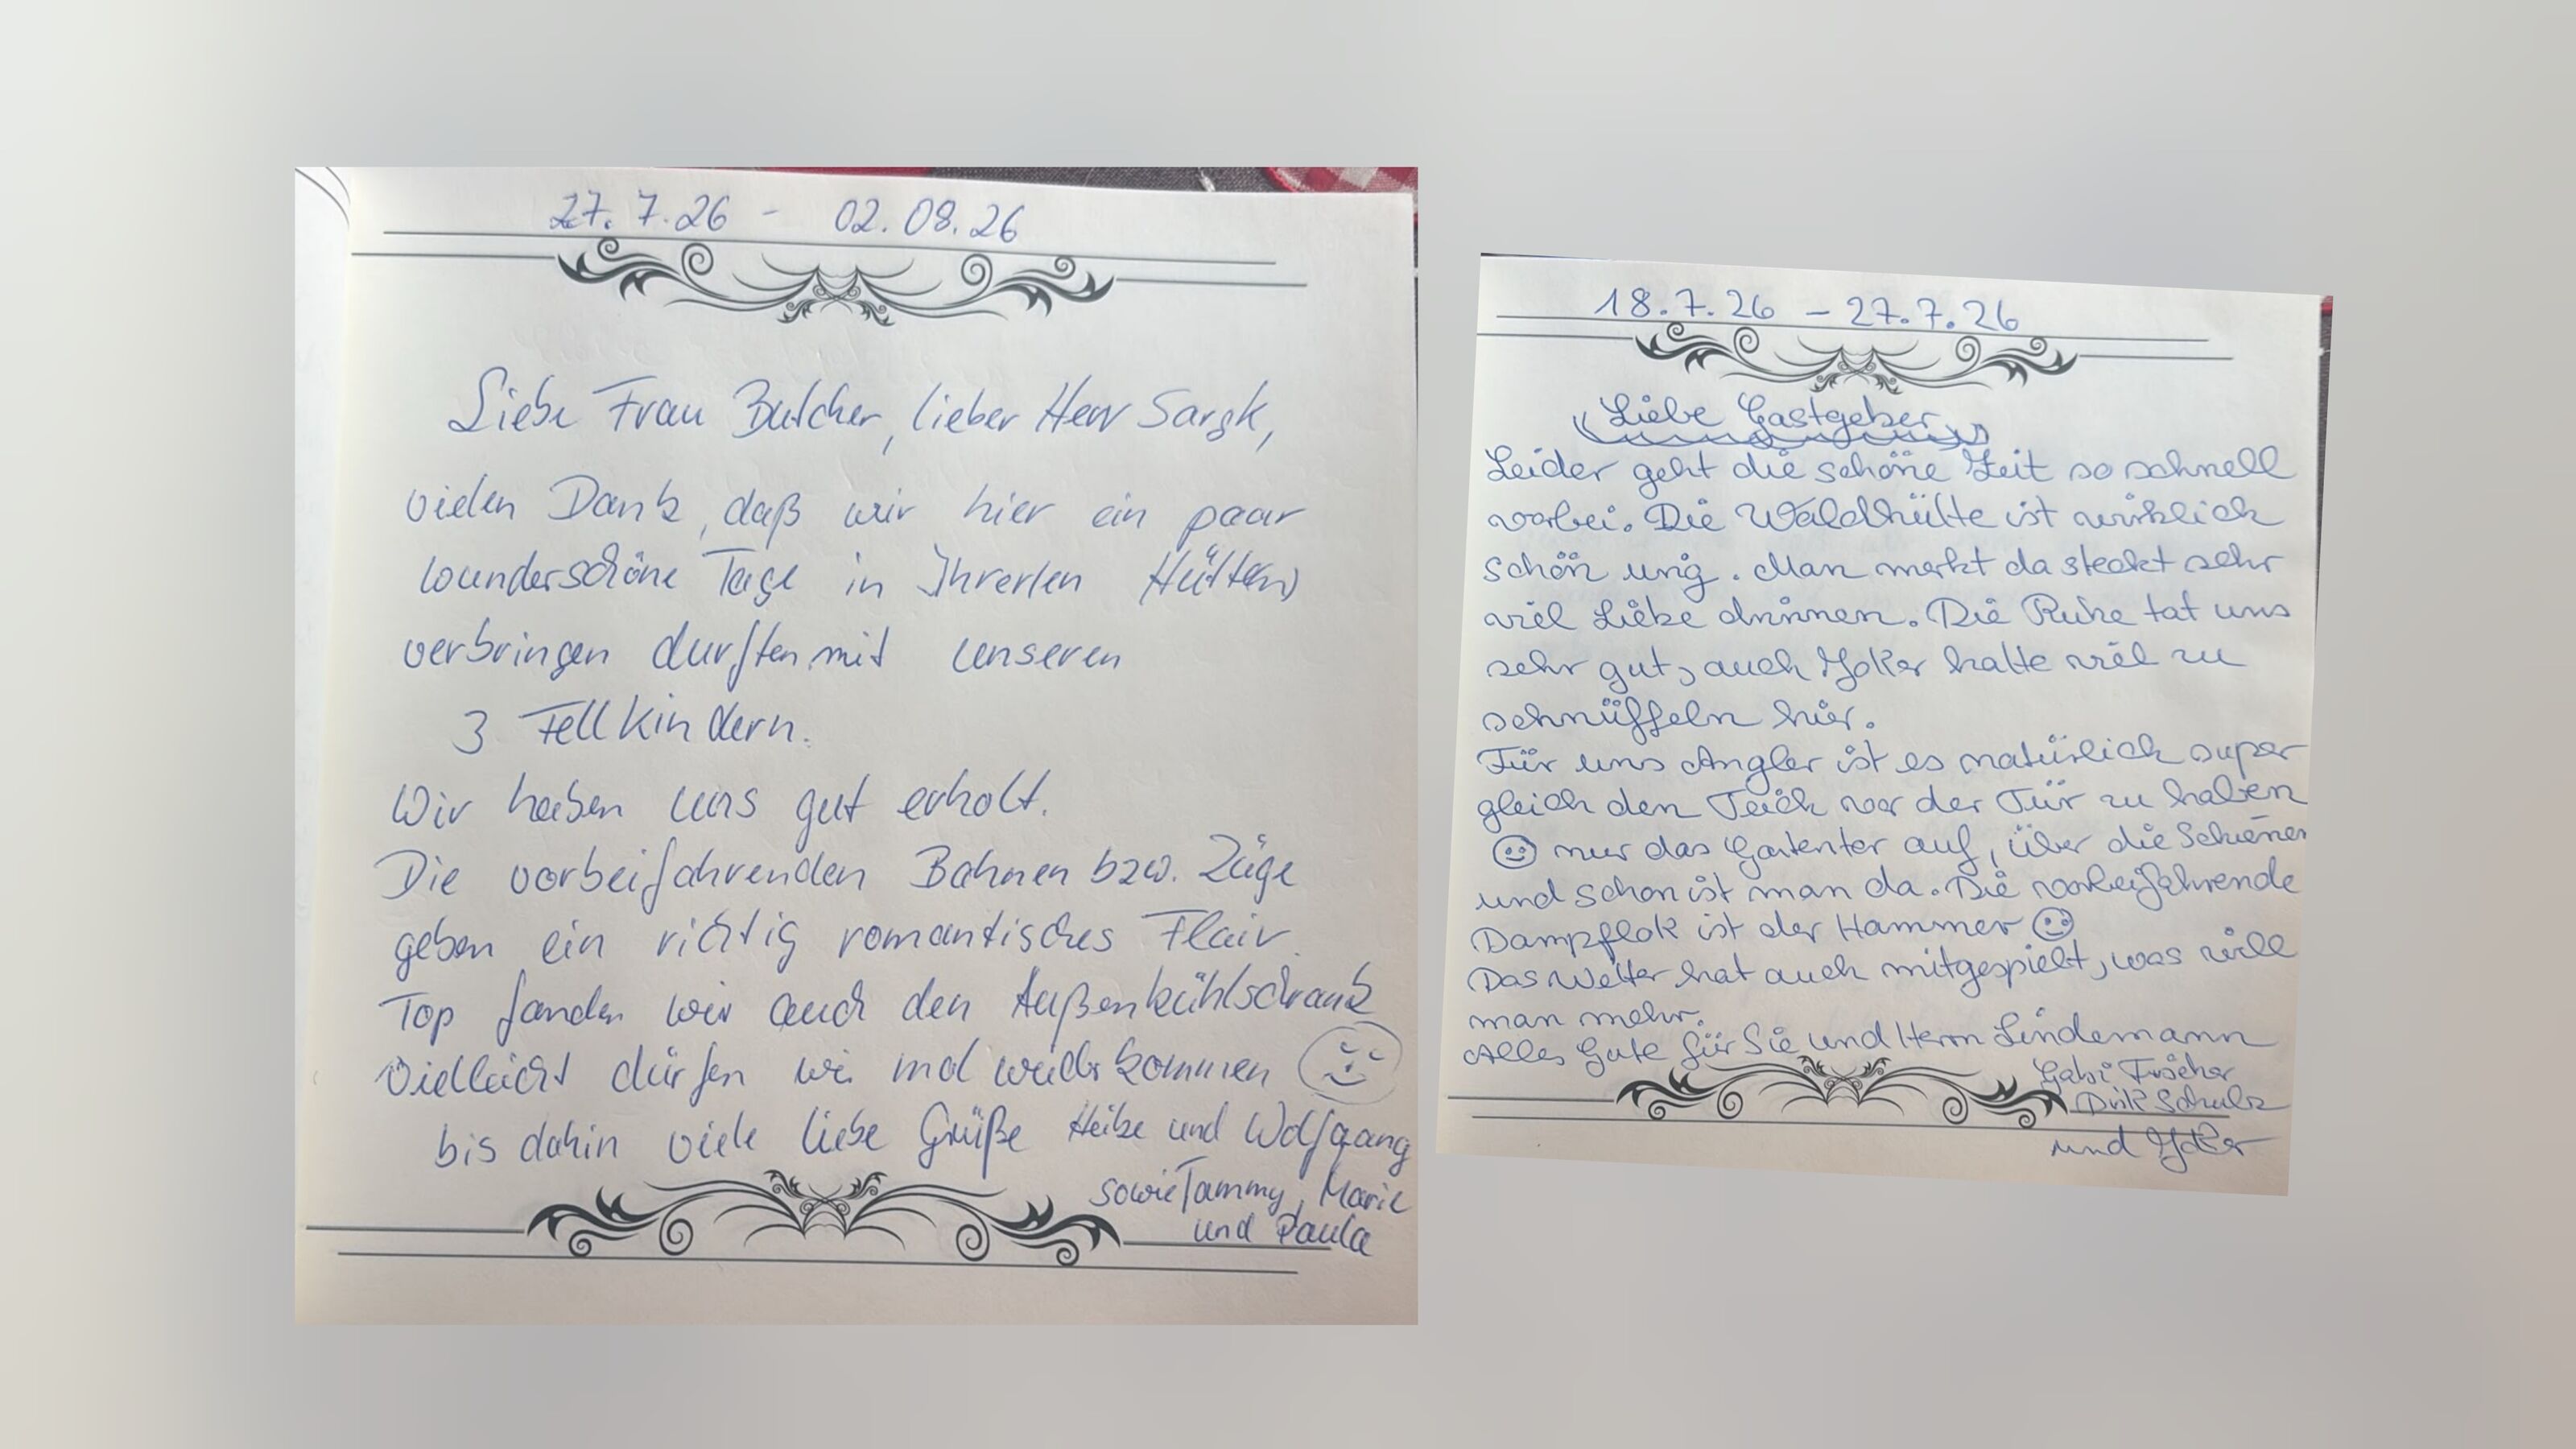 27.7.26 - 02.08.26
Liebe Frau Butcher, lieber Herr Sargk,
vielen Dank, daß wir hier ein paar
wunderschöne Tage in Ihrer/en Hütte(n)
verbringen durften mit unseren
3 Fellkindern.
Wir haben uns gut erholt.
Die vorbeifahrenden Bahnen bzw. Züge
geben ein richtig romantisches Flair.
Top fanden wir auch den Außenkühlschrank
Vielleicht dürfen wir mal wieder kommen
bis dahin viele liebe Grüße Heike und Wolfgang
sowie Tammy, Marie
und Paula
18.7.26 - 27.7.26
Liebe Gastgeber
Leider geht die schöne Zeit so schnell
vorbei. Die Waldhütte ist wirklich
schön urig. Man merkt da steckt sehr
viel Liebe drinnen. Die Ruhe tat uns
sehr gut, auch Joker hatte viel zu
schnüffeln hier.
Für uns Angler ist es natürlich super
gleich den Teich vor der Tür zu haben
nur das Gartentor auf, über die Schienen
und schon ist man da. Die vorbeifahrende
Dampflok ist der Hammer
Das Wetter hat auch mitgespielt, was will
man mehr.
Alles Gute für Sie und Herrn Lindemann
Gabi Fischer
Dirk Schulz
und Joker